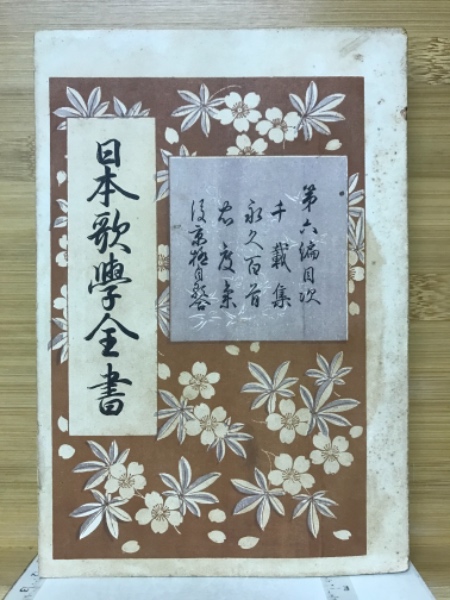 日本歌學全書
第六編目次
千載集
永久百首
忠度集
後京極自歌合